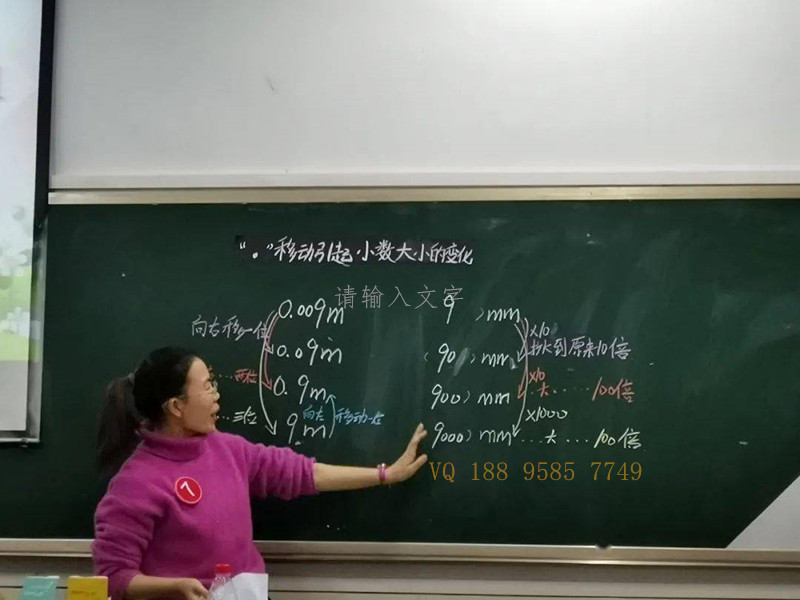 “。”移动引起小数大小的变化
请输入文字
0.009m
9 ) mm
向右移一位
×10
扩大到原来10倍
0.09m
(90 ) mm
……两位
0.9m
900) mm
×10
大……100倍
……三位
9m
向左移动一位
9000) mm
×1000
…大…100倍
VQ 188 9585 7749
7